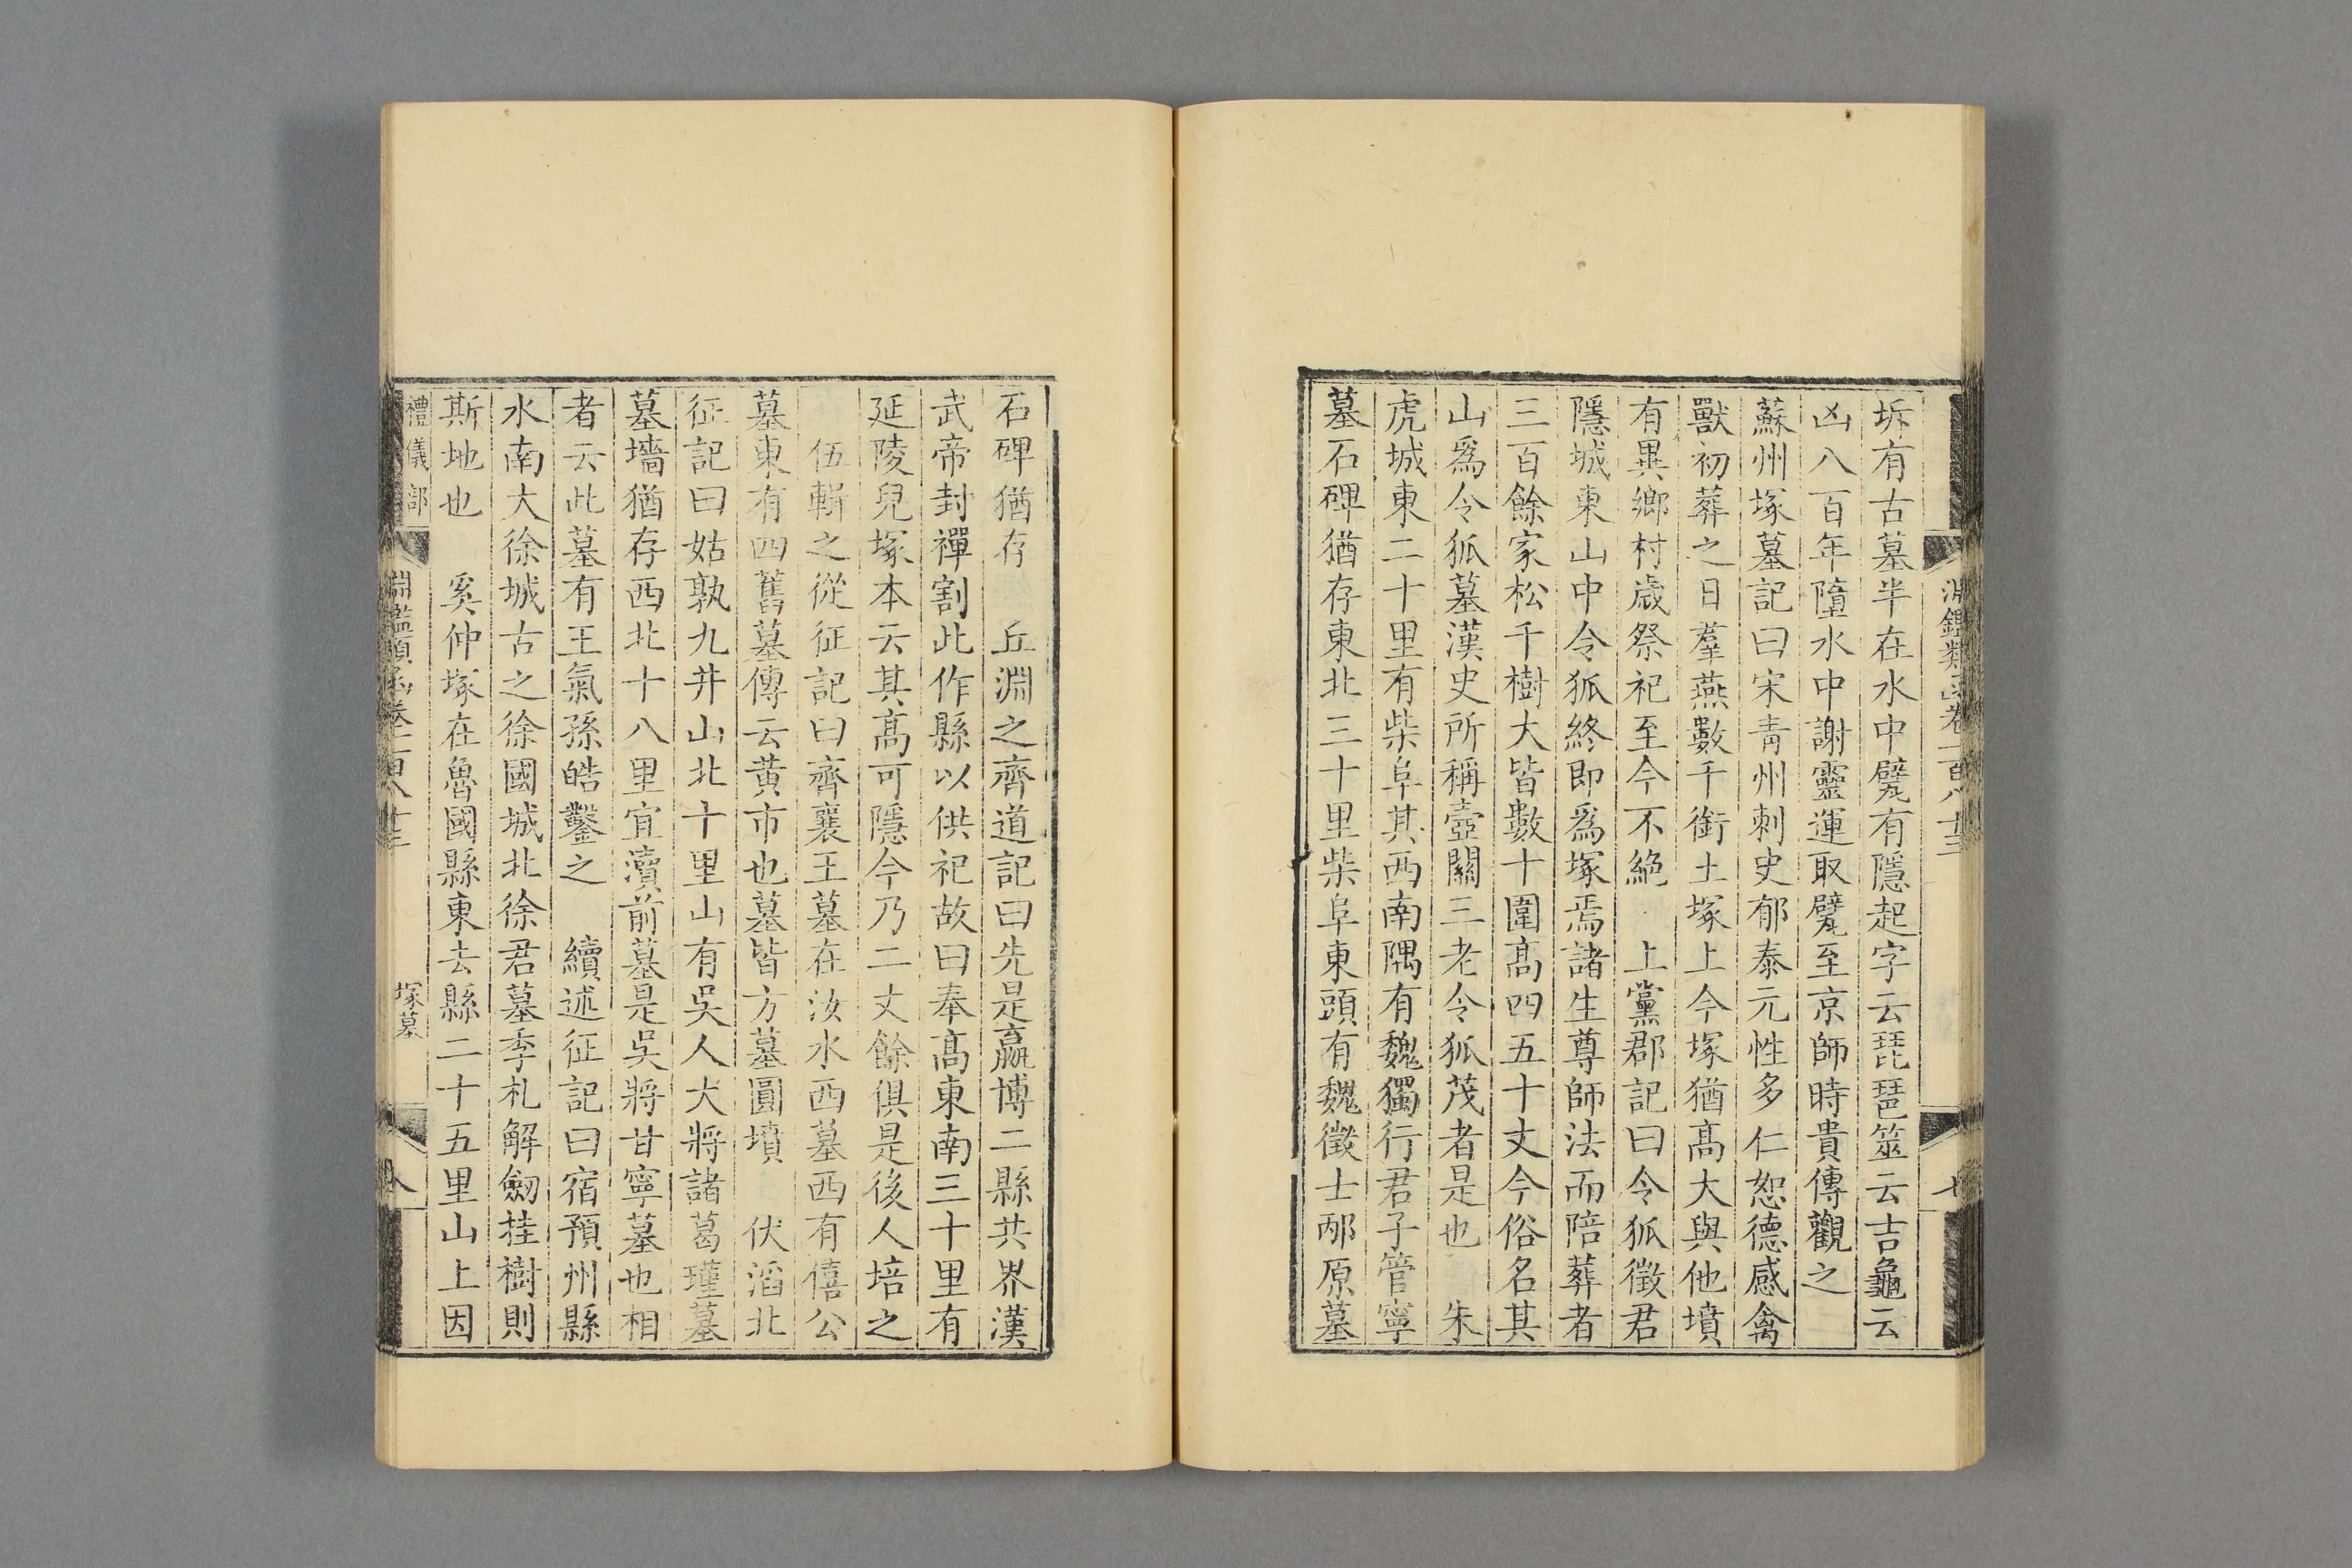 淵鑑類函卷一百八十三
七
坼有古墓半在水中甓有隱起字云琵琶筮云吉龜云
凶八百年墮水中謝靈運取甓至京師時貴傳觀之
蘇州塚墓記曰宋青州刺史郁泰元性多仁恕德感禽
獸初葬之日羣燕數千銜土塚上今塚猶髙大與他墳
有異鄉村歲祭祀至今不絶　上黨郡記曰令狐徵君
隱城東山中令狐終即爲塚焉諸生尊師法而陪葬者
三百餘家松千樹大皆數十圍髙四五十丈今俗名其
山爲令狐墓漢史所稱壺關三老令狐茂者是也　朱
虎城東二十里有柴阜其西南隅有魏獨行君子管寧
墓石碑猶存東北三十里柴阜東頭有魏徵士邴原墓
石碑猶存　丘淵之齊道記曰先是嬴博二縣共界漢
武帝封禪割此作縣以供祀故曰奉髙東南三十里有
延陵兒塚本云其髙可隱今乃二丈餘俱是後人培之
伍輯之從征記曰齊襄王墓在汝水西墓西有僖公
墓東有四舊墓傳云黄市也墓皆方墓圓墳　伏滔北
征記曰姑孰九井山北十里山有吳人大將諸葛瑾墓
墓墻猶存西北十八里宜瀆前墓是吳將甘寧墓也相
者云此墓有王氣孫皓鑿之　續述征記曰宿預州縣
水南大徐城古之徐國城北徐君墓季札解劒挂樹則
斯地也　奚仲塚在魯國縣東去縣二十五里山上因
禮儀部
淵鑑類函卷一百八十三
塚墓
八